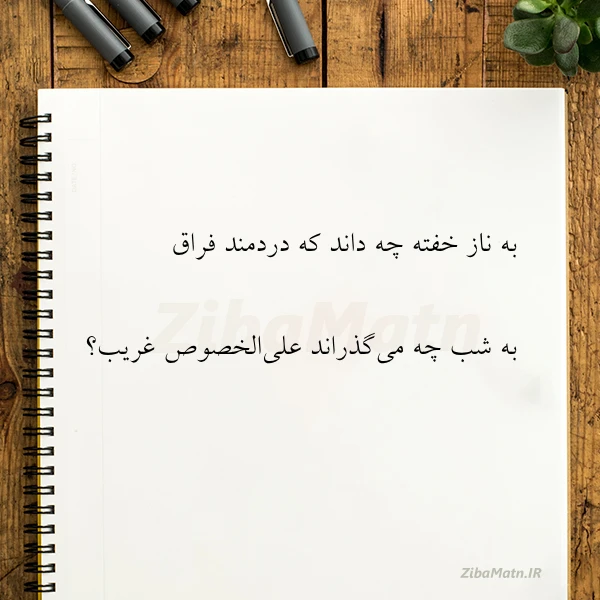 به ناز خفته چه داند که دردمند فراق
ZibaMatn
به شب چه می‌گذراند علی‌الخصوص غریب؟
ZibaMatn.IR